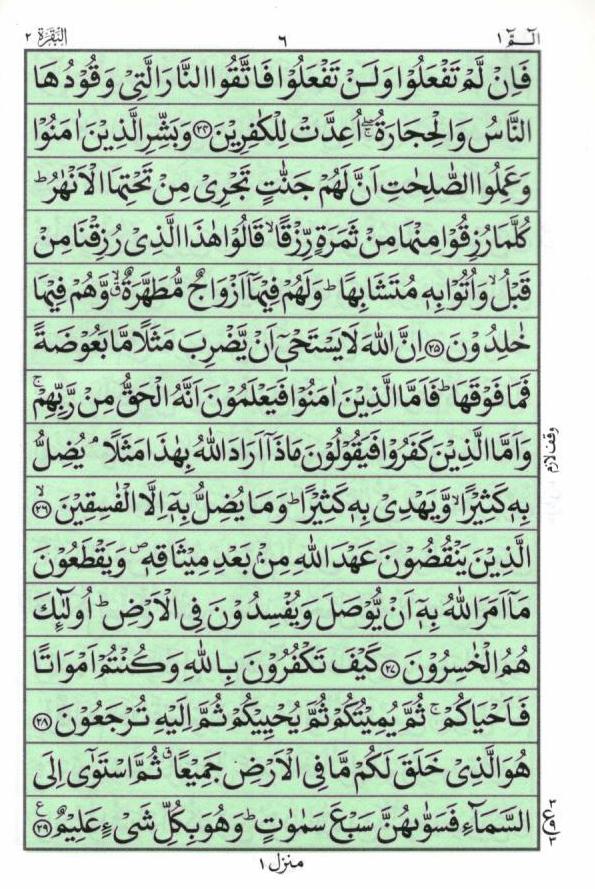 الٓمّٓ ١ ٦ البقرة ٢
فَاِنْ لَّمْ تَفْعَلُوْا وَلَنْ تَفْعَلُوْا فَاتَّقُوا النَّارَ الَّتِىْ وَقُوْدُهَا
النَّاسُ وَالْحِجَارَةُ ۖۚ اُعِدَّتْ لِلْكٰفِرِيْنَ ۝٢٤ وَبَشِّرِ الَّذِيْنَ اٰمَنُوْا
وَعَمِلُوا الصّٰلِحٰتِ اَنَّ لَهُمْ جَنّٰتٍ تَجْرِىْ مِنْ تَحْتِهَا الْاَنْهٰرُ ؕ
كُلَّمَا رُزِقُوْا مِنْهَا مِنْ ثَمَرَةٍ رِّزْقًا ۙ قَالُوْا هٰذَا الَّذِىْ رُزِقْنَا مِنْ
قَبْلُ ۙ وَاُتُوْا بِهٖ مُتَشَابِهًا ؕ وَلَهُمْ فِيْهَآ اَزْوَاجٌ مُّطَهَّرَةٌ ۙۗ وَّهُمْ فِيْهَا
خٰلِدُوْنَ ۝٢٥ اِنَّ اللّٰهَ لَا يَسْتَحْىٖٓ اَنْ يَّضْرِبَ مَثَلًا مَّا بَعُوْضَةً
فَمَا فَوْقَهَا ؕ فَاَمَّا الَّذِيْنَ اٰمَنُوْا فَيَعْلَمُوْنَ اَنَّهُ الْحَقُّ مِنْ رَّبِّهِمْ ۚ
وَاَمَّا الَّذِيْنَ كَفَرُوْا فَيَقُوْلُوْنَ مَاذَآ اَرَادَ اللّٰهُ بِهٰذَا مَثَلًا ۘ يُضِلُّ
وقف لازم
بِهٖ كَثِيْرًا ۙ وَّيَهْدِىْ بِهٖ كَثِيْرًا ؕ وَمَا يُضِلُّ بِهٖٓ اِلَّا الْفٰسِقِيْنَ ۙ۝٢٦
الَّذِيْنَ يَنْقُضُوْنَ عَهْدَ اللّٰهِ مِنْۢ بَعْدِ مِيْثَاقِهٖ ۪ وَيَقْطَعُوْنَ
مَآ اَمَرَ اللّٰهُ بِهٖٓ اَنْ يُّوْصَلَ وَيُفْسِدُوْنَ فِى الْاَرْضِ ؕ اُولٰٓئِكَ
هُمُ الْخٰسِرُوْنَ ۝٢٧ كَيْفَ تَكْفُرُوْنَ بِاللّٰهِ وَكُنْتُمْ اَمْوَاتًا
فَاَحْيَاكُمْ ۚ ثُمَّ يُمِيْتُكُمْ ثُمَّ يُحْيِيْكُمْ ثُمَّ اِلَيْهِ تُرْجَعُوْنَ ۝٢٨
هُوَ الَّذِىْ خَلَقَ لَكُمْ مَّا فِى الْاَرْضِ جَمِيْعًا ۗ ثُمَّ اسْتَوٰٓى اِلَى
السَّمَآءِ فَسَوّٰىهُنَّ سَبْعَ سَمٰوٰتٍ ؕ وَهُوَ بِكُلِّ شَىْءٍ عَلِيْمٌ ۝٢٩ ع
٣ ع ٩ ٣
منزل ١